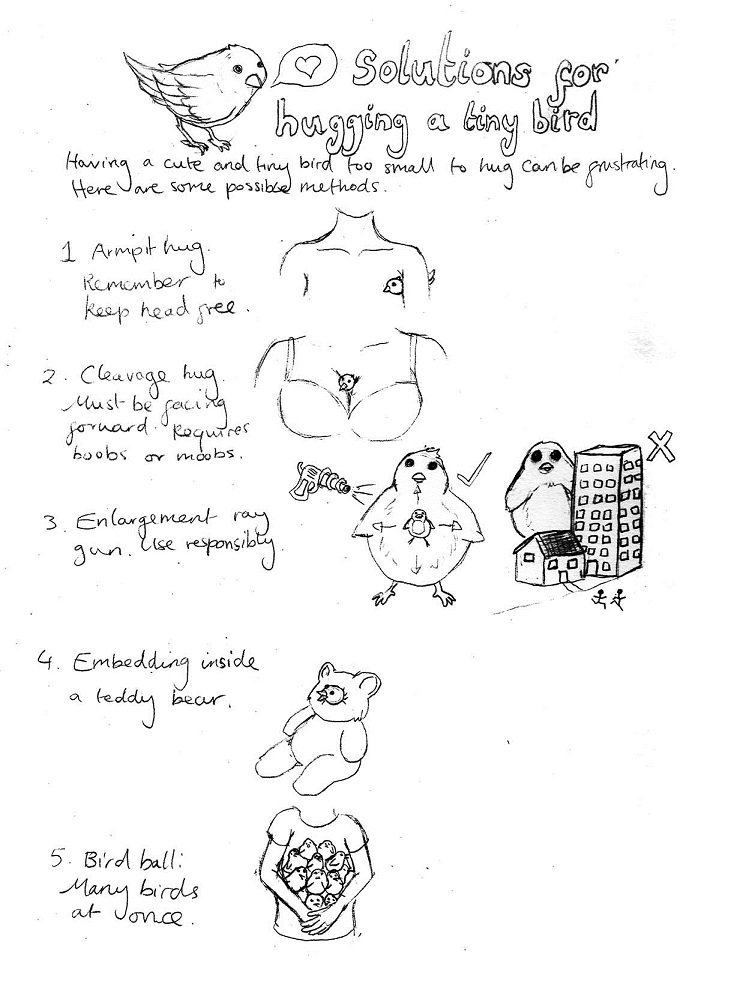 Solutions for
hugging a tiny bird
Having a cute and tiny bird too small to hug can be frustrating.
Here are some possible methods.
1 Armpit hug.
Remember to
keep head free.
2. Cleavage hug.
Must be facing
forward. Requires
boobs or moobs.
3. Enlargement ray
gun. Use responsibly.
4. Embedding inside
a teddy bear.
5. Bird ball:
Many birds
at once.